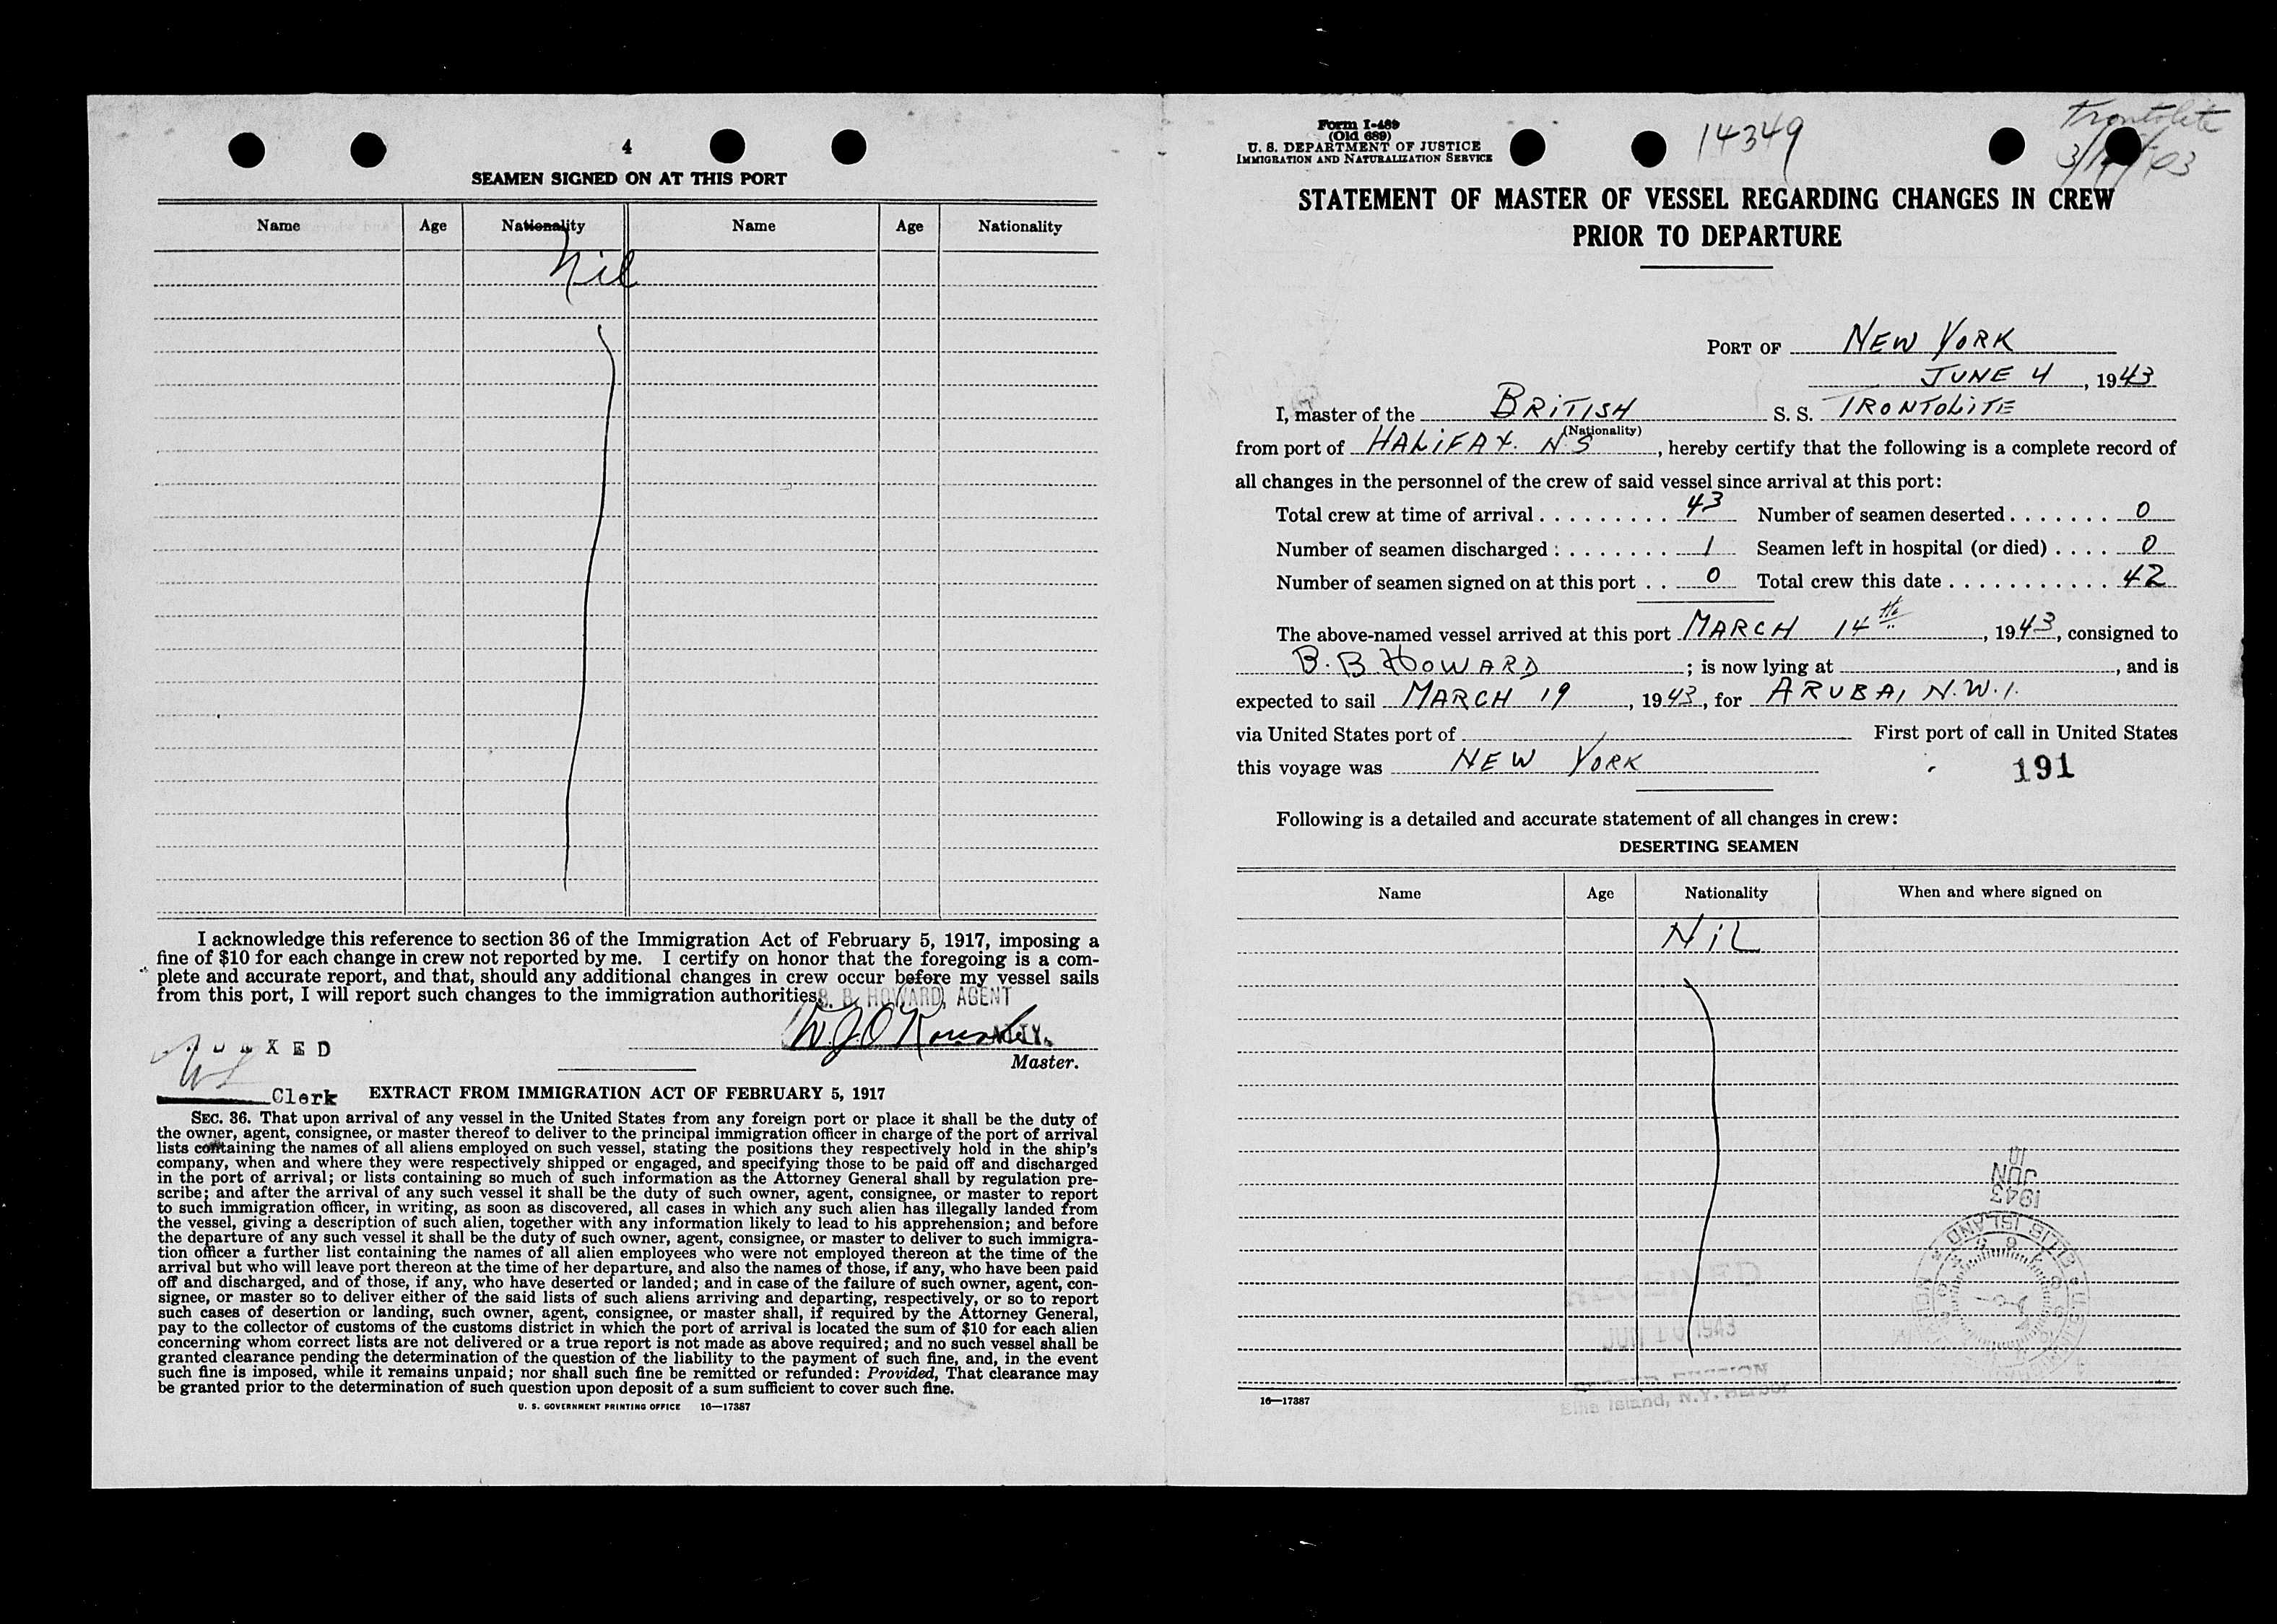 4
SEAMEN SIGNED ON AT THIS PORT
Name Age Nationality Name Age Nationality
Nil
I acknowledge this reference to section 36 of the Immigration Act of February 5, 1917, imposing a
fine of $10 for each change in crew not reported by me. I certify on honor that the foregoing is a com-
plete and accurate report, and that, should any additional changes in crew occur before my vessel sails
from this port, I will report such changes to the immigration authorities.
B. B. HOWARD, AGENT
Master.
Clerk
EXTRACT FROM IMMIGRATION ACT OF FEBRUARY 5, 1917
SEC. 36. That upon arrival of any vessel in the United States from any foreign port or place it shall be the duty of
the owner, agent, consignee, or master thereof to deliver to the principal immigration officer in charge of the port of arrival
lists containing the names of all aliens employed on such vessel, stating the positions they respectively hold in the ship's
company, when and where they were respectively shipped or engaged, and specifying those to be paid off and discharged
in the port of arrival; or lists containing so much of such information as the Attorney General shall by regulation pre-
scribe; and after the arrival of any such vessel it shall be the duty of such owner, agent, consignee, or master to report
to such immigration officer, in writing, as soon as discovered, all cases in which any such alien has illegally landed from
the vessel, giving a description of such alien, together with any information likely to lead to his apprehension; and before
the departure of any such vessel it shall be the duty of such owner, agent, consignee, or master to deliver to such immigra-
tion officer a further list containing the names of all alien employees who were not employed thereon at the time of the
arrival but who will leave port thereon at the time of her departure, and also the names of those, if any, who have been paid
off and discharged, and of those, if any, who have deserted or landed; and in case of the failure of such owner, agent, con-
signee, or master so to deliver either of the said lists of such aliens arriving and departing, respectively, or so to report
such cases of desertion or landing, such owner, agent, consignee, or master shall, if required by the Attorney General,
pay to the collector of customs of the customs district in which the port of arrival is located the sum of $10 for each alien
concerning whom correct lists are not delivered or a true report is not made as above required; and no such vessel shall be
granted clearance pending the determination of the question of the liability to the payment of such fine, and, in the event
such fine is imposed, while it remains unpaid; nor shall such fine be remitted or refunded: Provided, That clearance may
be granted prior to the determination of such question upon deposit of a sum sufficient to cover such fine.
U. S. GOVERNMENT PRINTING OFFICE 16—17387
Form I-489
(Old 689)
U. S. DEPARTMENT OF JUSTICE
IMMIGRATION AND NATURALIZATION SERVICE
14349
Trontolite
STATEMENT OF MASTER OF VESSEL REGARDING CHANGES IN CREW
PRIOR TO DEPARTURE
PORT OF NEW YORK
JUNE 4, 1943
I, master of the BRITISH S. S. TRONTOLITE
(Nationality)
from port of HALIFAX. N.S, hereby certify that the following is a complete record of
all changes in the personnel of the crew of said vessel since arrival at this port:
Total crew at time of arrival 43 Number of seamen deserted 0
Number of seamen discharged 1 Seamen left in hospital (or died) 0
Number of seamen signed on at this port 0 Total crew this date 42
The above-named vessel arrived at this port MARCH 14th, 1943, consigned to
B. B. HOWARD; is now lying at , and is
expected to sail MARCH 19, 1943, for ARUBA, N.W.I.
via United States port of First port of call in United States
this voyage was NEW YORK
191
Following is a detailed and accurate statement of all changes in crew:
DESERTING SEAMEN
Name Age Nationality When and where signed on
NiL
10
JUN
1943
RECEIVED
JUN 10 1943
Ellis Island, N.Y. Harbor
16—17387